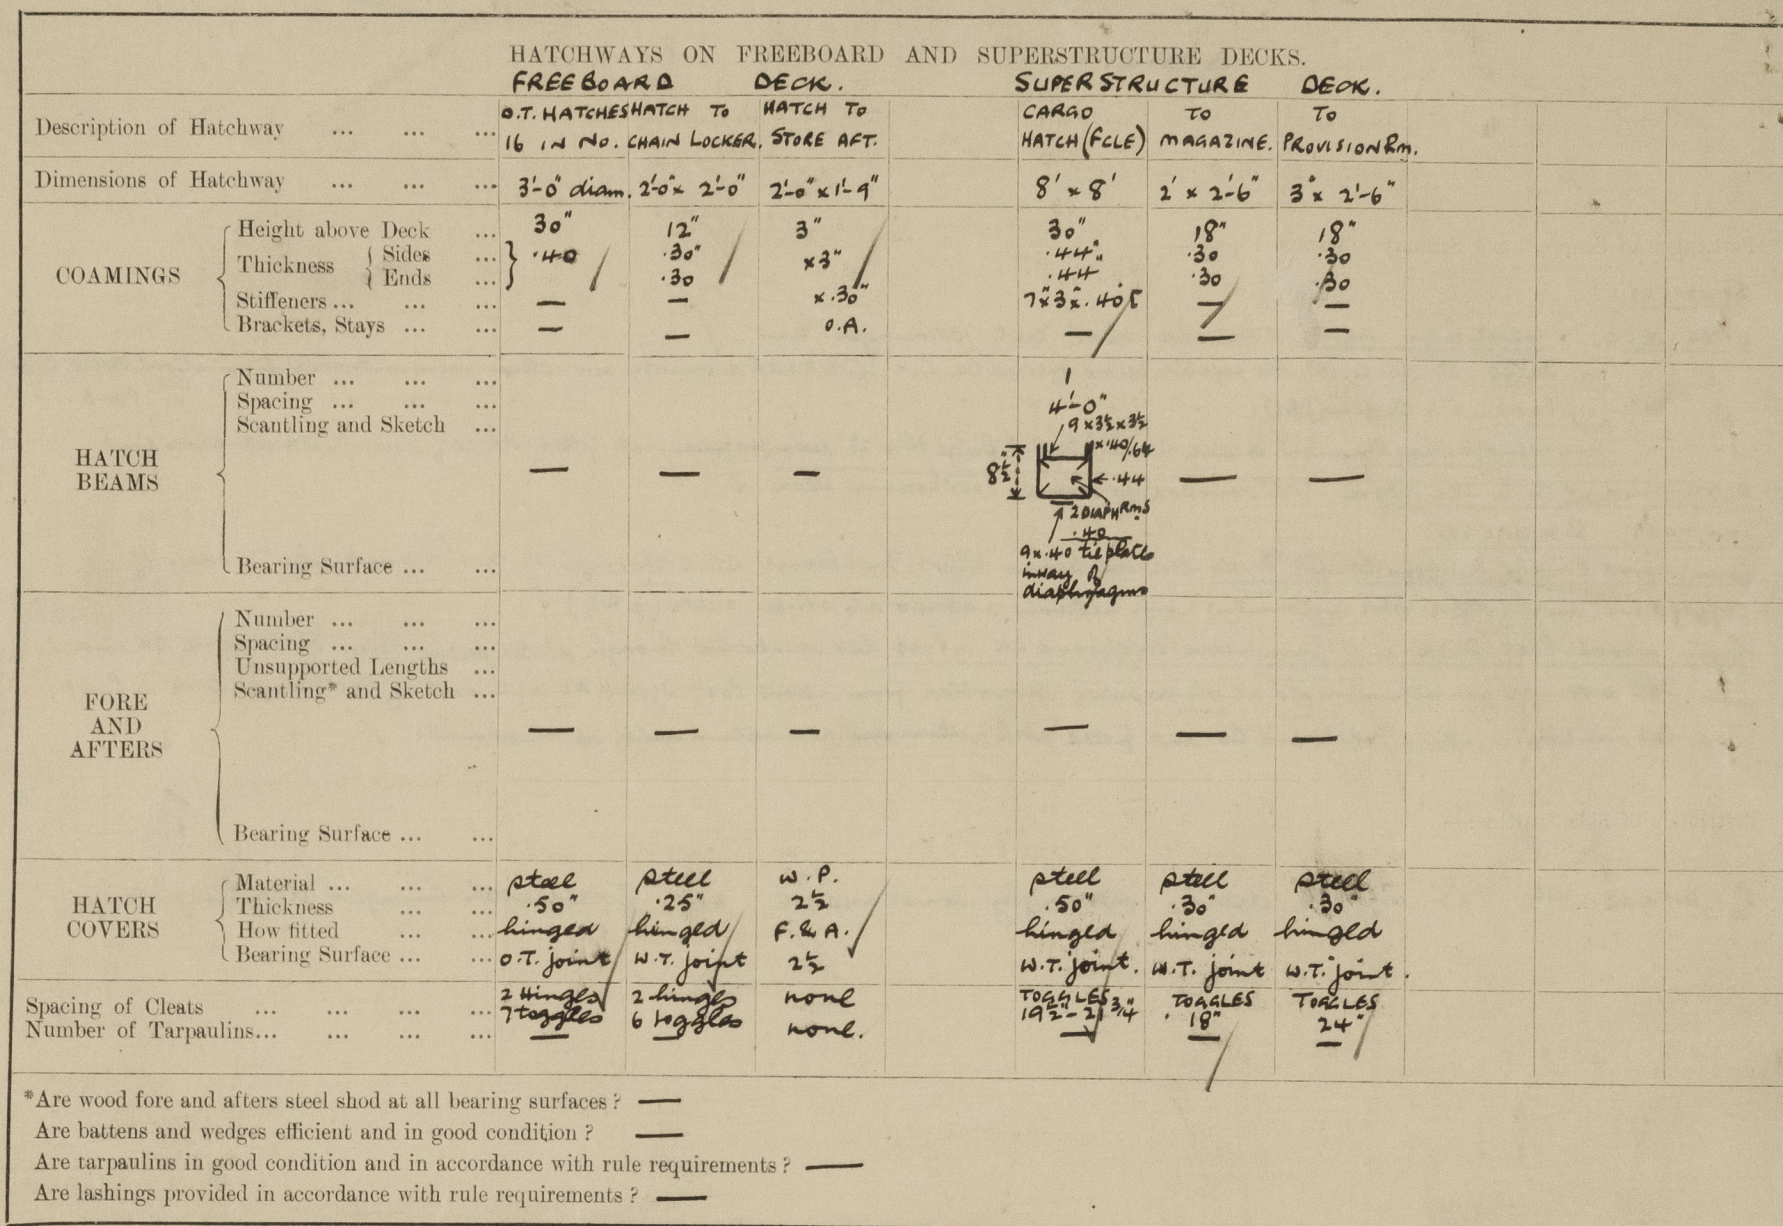 HATCHWAYS ON FREEBOARD AND SUPERSTRUCTURE DECKS.
FREEBOARD DECK. SUPERSTRUCTURE DECK.
Description of Hatchway ... ... ... O.T. HATCHES 16 IN NO. HATCH TO CHAIN LOCKER. HATCH TO STORE AFT. CARGO HATCH (FCLE) TO MAGAZINE. TO PROVISION Rm.
Dimensions of Hatchway ... ... ... 3'-0" diam. 2'-0" x 2'-0" 2'-0" x 1'-9" 8' x 8' 2' x 2'-6" 3" x 2'-6"
COAMINGS
Height above Deck ... 30" 12" 3" 30" 18" 18"
Thickness { Sides ... } .40 .30" x 3" .44" .30 .30
{ Ends ... .30 .44 .30 .30
Stiffeners ... ... ... — — x .30" 7" x 3" x .40 [ — —
Brackets, Stays ... ... — — O.A. — — —
HATCH BEAMS
Number ... ... ... 1
Spacing ... ... ... 4'-0"
Scantling and Sketch ... 9 x 3½ x 3½
x .40/.64
— — — 8½" .44 — —
2 DIAPHRMS
.40
9 x .40 tieplate
inway of
diaphragms
Bearing Surface ... ...
FORE AND AFTERS
Number ... ... ...
Spacing ... ... ...
Unsupported Lengths ...
Scantling* and Sketch ...
— — — — — —
Bearing Surface ... ...
HATCH COVERS
Material ... ... ... steel steel W.P. steel steel steel
Thickness ... ... .50" .25" 2½ .50" .30" .30"
How fitted ... ... hinged hinged F. & A. hinged hinged hinged
Bearing Surface ... ... O.T. joint W.T. joint 2½ W.T. joint. W.T. joint W.T. joint.
Spacing of Cleats ... ... ... ... 2 Hinges 7 toggles 2 hinges 6 toggles none TOGGLES 19½" - 21¾" TOGGLES 18" TOGGLES 24"
Number of Tarpaulins... ... ... ... — — none. — — —
*Are wood fore and afters steel shod at all bearing surfaces ? —
Are battens and wedges efficient and in good condition ? —
Are tarpaulins in good condition and in accordance with rule requirements ? —
Are lashings provided in accordance with rule requirements ? —